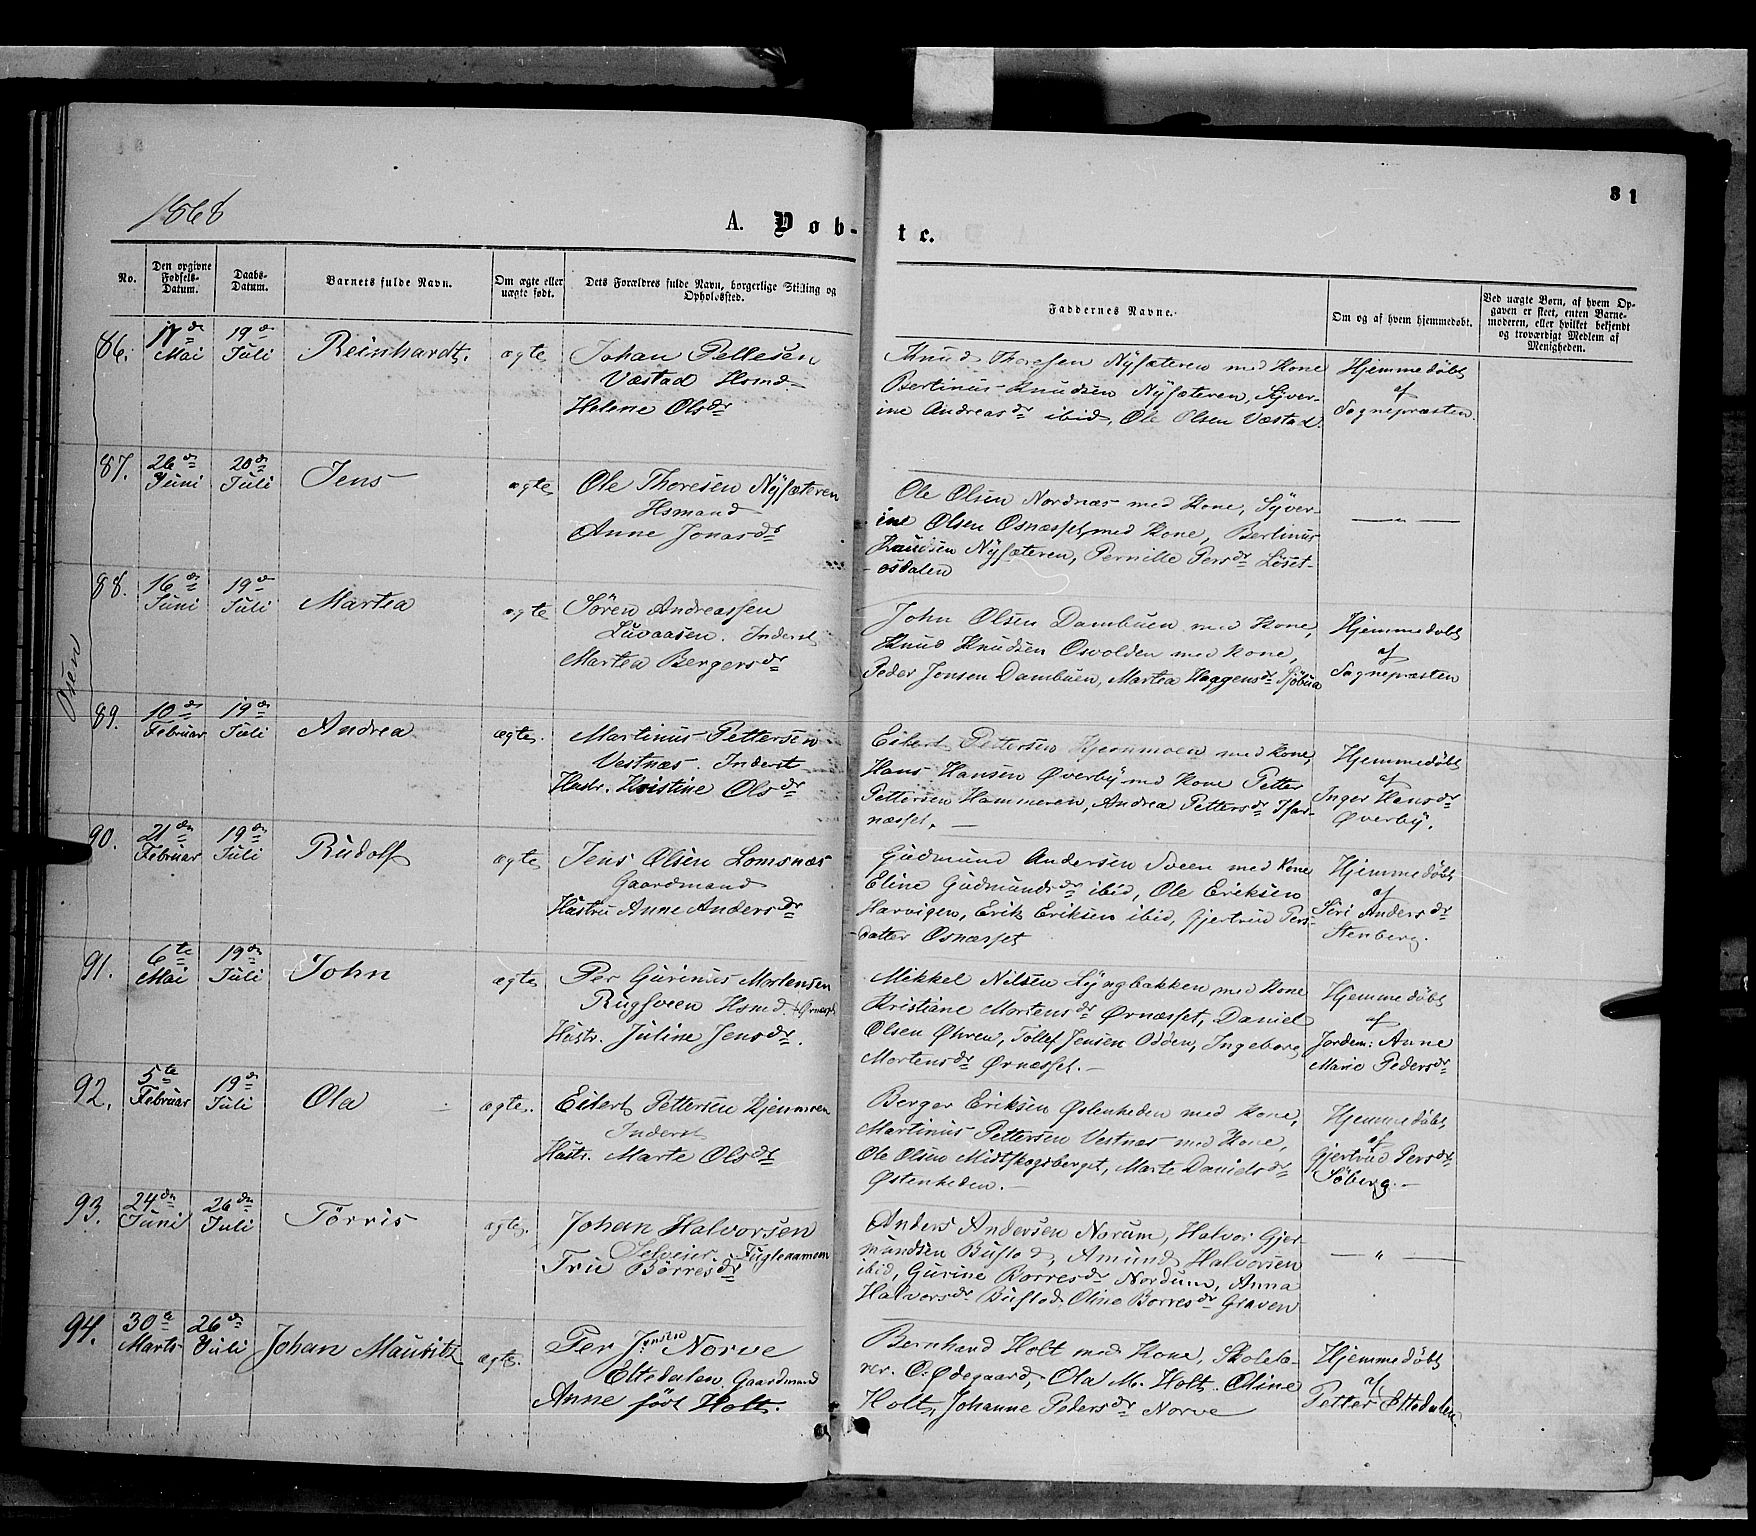 1868
A. Døb-
te.
31
No.
Den opgivne Fødsels-Datum.
Daabs-Datum.
Barnets fulde Navn.
Om ægte eller uægte født.
Dets Forældres fulde Navn, borgerlige Stilling og Opholdssted.
Faddernes Navne.
Om og af hvem hjemmedøbt.
Ved uægte Børn, af hvem Opgaven er skeet, enten Barnemoderen, eller hvilket bekjendt og troværdigt Medlem af Menigheden.
Osen
86. 17de Mai 19de Juli Reinhardt. ægte
Johan Pellesen
Væstad Hsmd.
Helene Olsdr
Knud Thoresen Nysæteren med Kone
Bertinus Knudsen Nysæteren, Syver-
ine Andreasdr ibid, Ole Olsen Væstad.
Hjemmedøbt
af
Sognepræsten.
87. 26de Juni 20de Juli Jens ægte
Ole Thoresen Nysæteren
Hsmand
Anne Jonasdr
Ole Olsen Nordnæs med Kone, Syver-
ine Olsen Osnæsset med Kone, Bertinus
Knudsen Nysæteren, Pernille Persdr Løset-
osdalen
— " —
88. 16de Juni 19de Juli Martea ægte
Søren Andreassen
Luvaasen. Inderst
Martea Bergersdr
John Olsen Dambuen med Kone,
Knud Knudsen Osvolden med Kone,
Peder Jonsen Dambuen, Martea Haagensdr Sjøbua
Hjemmedøbt
af
Sognepræsten
89. 10de Februar 19de Juli Andrea ægte.
Martinus Pettersen
Vestnæs. Inderst
Hustr. Kristine Olsdr
Eilert Pettersen Kjernmoen med Kone,
Hans Hansen Øverby med Kone Petter
Pettersen Hammeren, Andrea Pettersdr
næsset. —
Hjemmedøbt
af
Inger Hansdr
Øverby.
90. 21den Februar 19de Juli Rudolf ægte
Jens Olsen Lomsnæs
Gaardmand
Hustru Anne Andersdr
Gudmund Andersen Sveen med Kone
Eline Gudmundsdr ibid, Ole Eriksen
Harvigen, Erik Eriksen ibid, Gjertrud Pers-
datter Osnæsset
Hjemmedøbt
af
Siri Andersdr
Stenberg.
91. 6te Mai 19de Juli John ægte
Per Gurinus Mortensen
Rugsveen Hsmd. Ørnæsset
Hustr. Juline Jensdr.
Mikkel Nilsen Lyngbakken med Kone
Kristiane Martensdr Ørnæsset, Daniel
Olsen Øhren, Tollef Jensen Odden, Ingeborg
Mortensdr Ørnæsset. —
Hjemmedøbt
af
Jordem: Anne
Marie Pedersdr
92. 5te Februar 19de Juli Ola ægte.
Eilert Pettersen Kjernmoen
Inderst
Hustr. Marte Olsdr
Berger Eriksen Østenheden med Kone,
Martinus Pettersen Vestnæs med Kone,
Ole Olsen Midtskogsberget, Marte Danielsdr
Østenheden. —
Hjemmedøbt
af
Gjertrud Persdr
Søberg. —
93. 24de Juni 26de Juli Tørris ægte.
Johan Halvorsen
Selveier
Børresdr
Anders Andersen Norum, Halvor Gjer-
mundsen Bufstad, Amund Halvorsen
ibid, Gurine Børresdr Nordum, Anna
Halvorsdr Bufstad Oline Borresdr Graven
— " —
94. 30te Marts 26de Juli Johan Mauritz ægte.
Per Jensen Norve
Eltedalen Gaardmand
Anne født Holt.
Bernhard Holt med Kone, Skolelæ-
rer. O. Ødegaard, Ola M. Holt. Oline
Holt, Johanne Pedersdr Norve
Hjemmedøbt
af
Petter Eltedalen.